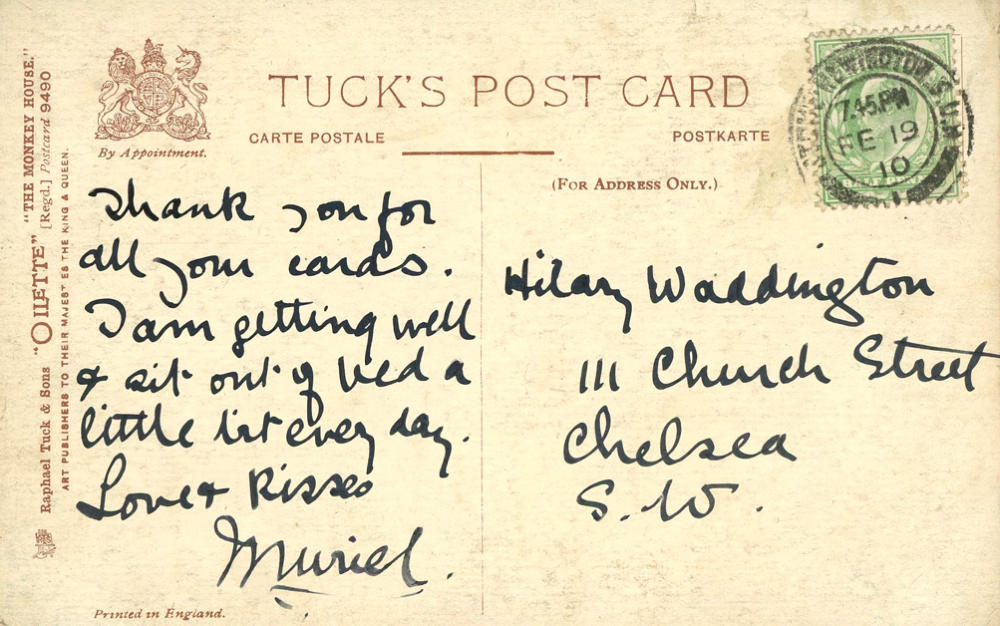 TUCK'S POST CARD
CARTE POSTALE
POSTKARTE
(FOR ADDRESS ONLY.)
By Appointment.
Raphael Tuck & Sons "OILETTE" "THE MONKEY HOUSE."
[Regd.] Postcard 9490
ART PUBLISHERS TO THEIR MAJESTIES THE KING & QUEEN.
NEWINGTON. S.O.
7.45 PM
FE 19
10
Thank you for
all your cards.
I am getting well
& sit out of bed a
little bit every day.
Love & Kisses
Muriel.
Hilary Waddington
111 Church Street
Chelsea
S. W.
Printed in England.